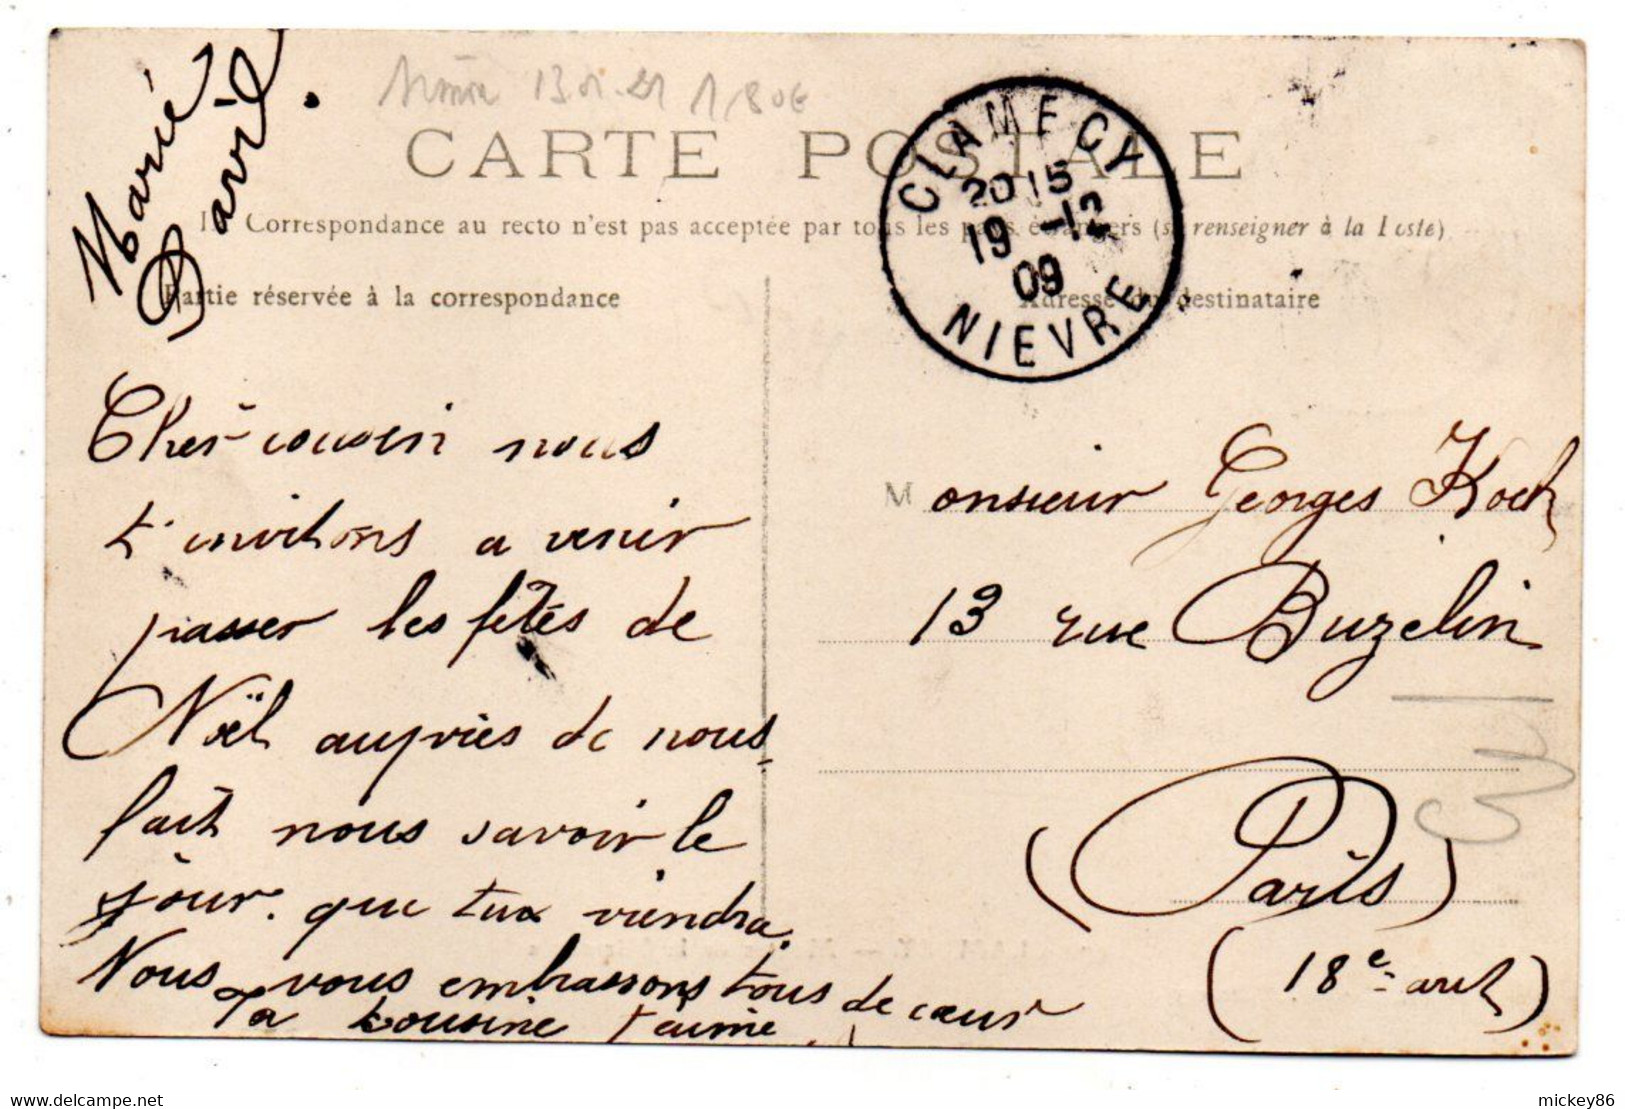 Marie
Davril.
13 01 21 1,80€
CARTE POSTALE
La Correspondance au recto n'est pas acceptée par tous les pays étrangers (se renseigner à la Poste)
Partie réservée à la correspondance
Adresse du destinataire
CLAMECY
2015
19 -12
09
NIEVRE
Cher cousin nous
t'invitons a venir
passer les fêtes de
Noël auprès de nous
fait nous savoir le
jour que tu viendra.
Nous vous embrassons tous de cœur
Ta cousine t'aime
Monsieur Georges Koch
13 rue Buzelin
(Paris)
(18e art)
mickey86